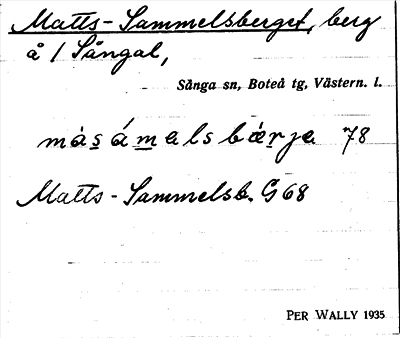 Matts-Sammelsberget, berg
å 1 Sångal,
Sånga sn, Boteå tg, Västern. l.
måsámalsbærja 78
Matts-Sammelsb. G 68
PER WALLY 1935